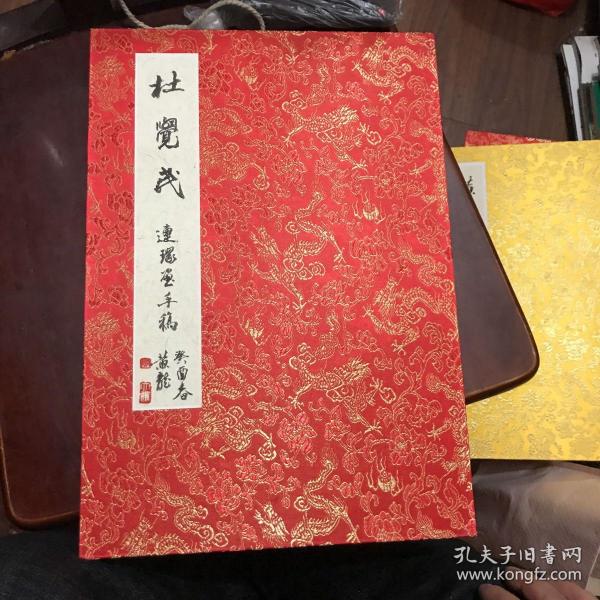 杜覺民
連環畫手稿
癸酉春
黄龍
孔夫子旧書网
www.kongfz.com